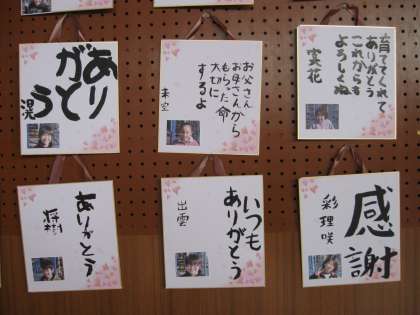 あり
がと
う
滉
お父さん
お母さんから
もらった命
大切に
するよ
未空
育ててくれて
ありがとう
これからも
よろしくね
実花
ありがとう
将樹
いつも
ありがとう
出雲
感謝
彩理咲